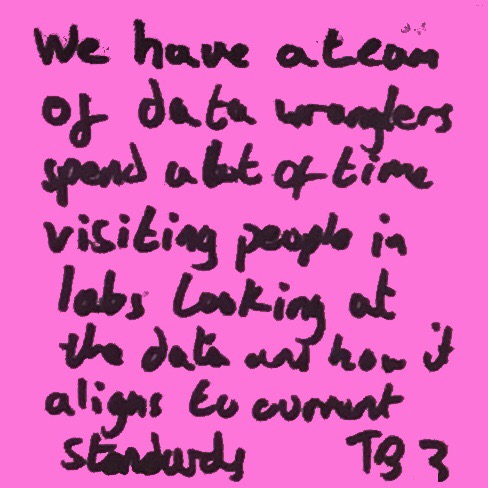 We have a team
of data wranglers
spend a lot of time
visiting people in
labs looking at
the data and how it
aligns to current
standards TB3